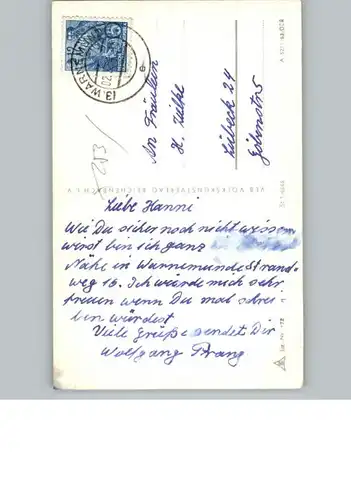 WARNEMÜNDE
An Fräulein
H.
Lübeck 24
253
VEB VOLKSKUNSTVERLAG REICHENBACH I. V.
Liebe Hanni
Wie Du sicher noch nicht wissen
wirst bin ich ganz
Nähe in Warnemünde Strand-
weg 16. Ich würde mich sehr
freuen wenn Du mal schrei
ben würdest
Viele Grüße sendet Dir
Wolfgang Prang